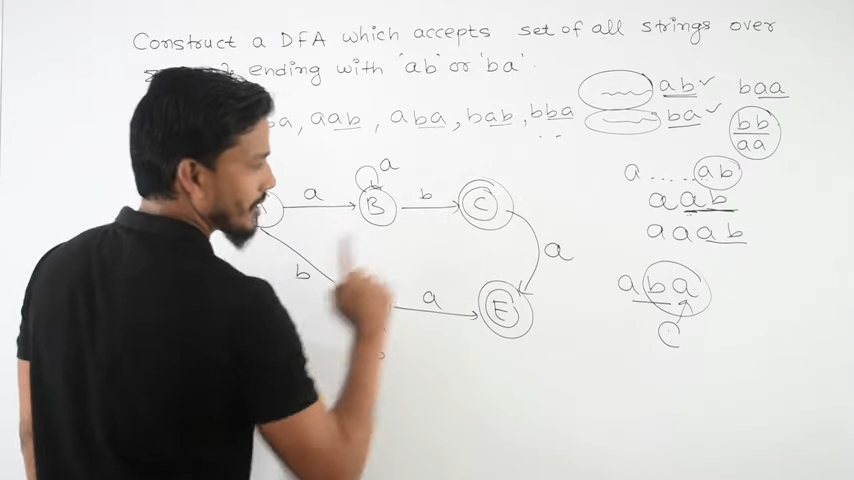 Construct a DFA which accepts set of all strings over
ending with 'ab' or 'ba'.
ab ✓ baa
ba, aab, aba, bab, bba
ba ✓ bb
aa
a ..... ab
a
aab
a B b C
aaab
a
b
aba
a E
C
b